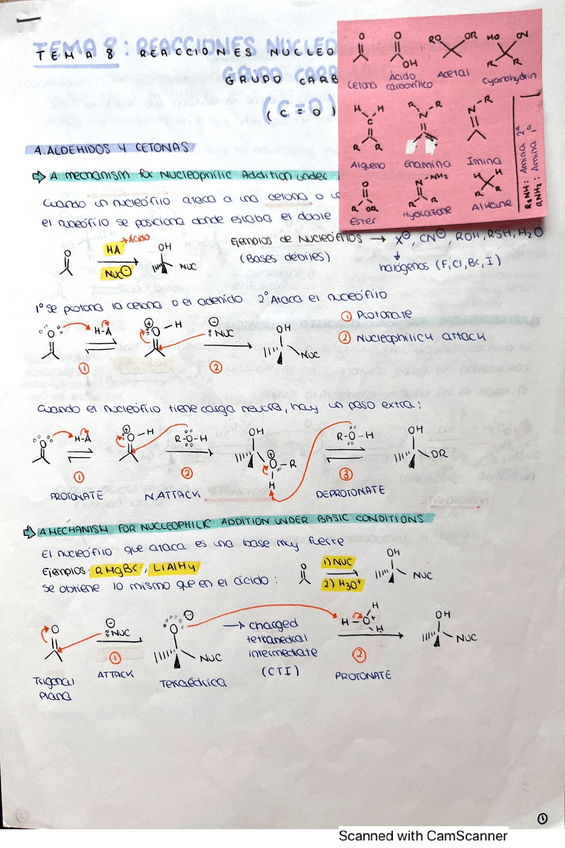 TEMA 8: REACCIONES NUCLEO
GRUPO CARB
(C=O)
Cetona
Ácido carboxílico
Acetal
Cyanohydrin
Alqueno
Enamina
Imina
Ester
Hydrazone
Alkane
R₂NH: Amina 2ª
RNH₂: Amina 1ª
4. ALDEHIDOS Y CETONAS
A mechanism for Nucleophilic Addition under
Cuando un nucleófilo ataca a una cetona o u
el nucleófilo se posiciona donde estaba el doble
HA → Ácido
Nuc⊖
OH
NUC
Ejemplos de Nucleófilos → X⊖, CN⊖, ROH, RSH, H₂O
(Bases débiles)
halógenos (F, Cl, Br, I)
1º se protona la cetona o el aldehído 2º Ataca el nucleófilo
① Protonate
② Nucleophilick attack
H-A
①
O-H
NUC
②
OH
NUC
Cuando el nucleófilo tiene carga neutra, hay un paso extra:
H-A
①
PROTONATE
O-H
R-O-H
②
N.ATTACK
OH
O-R
H
R-O-H
③
DEPROTONATE
OH
OR
A MECHANISM FOR NUCLEOPHILIC ADDITION UNDER BASIC CONDITIONS
El nucleófilo que ataca es una base muy fuerte
Ejemplos: RMgBr, LiAlH4
Se obtiene lo mismo que en el ácido:
1) NUC
2) H₃O⁺
OH
NUC
Trigonal Plana
NUC
①
ATTACK
NUC
Tetraédrica
→ charged tetrahedral intermediate (CTI)
②
PROTONATE
OH
NUC
①
Scanned with CamScanner